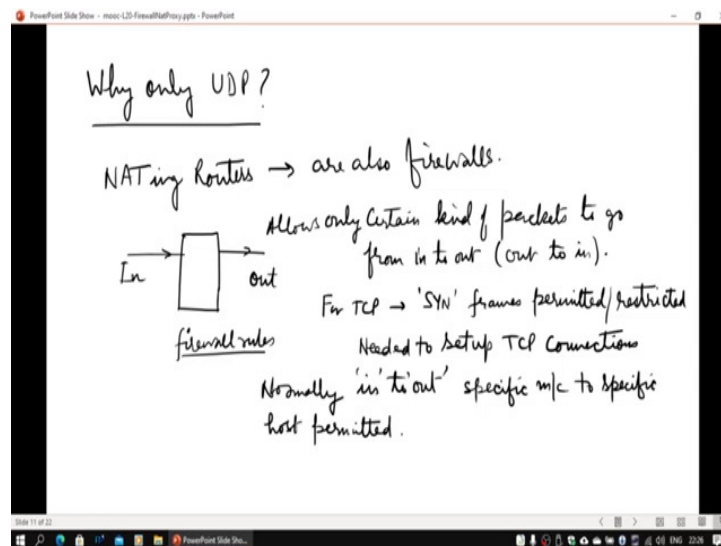 PowerPoint Slide Show - mooc-L20-FirewallNatProxy.pptx - PowerPoint
Why only UDP?
NATing Routers → are also firewalls.
Allows only Certain kind of packets to go
from in to out (out to in).
In
out
For TCP → 'SYN' frames permitted/restricted
firewall rules
Needed to setup TCP Connections
Normally 'in' to 'out' specific m/c to specific
host permitted.
Slide 11 of 22
PowerPoint Slide Sho...
ENG 22:26